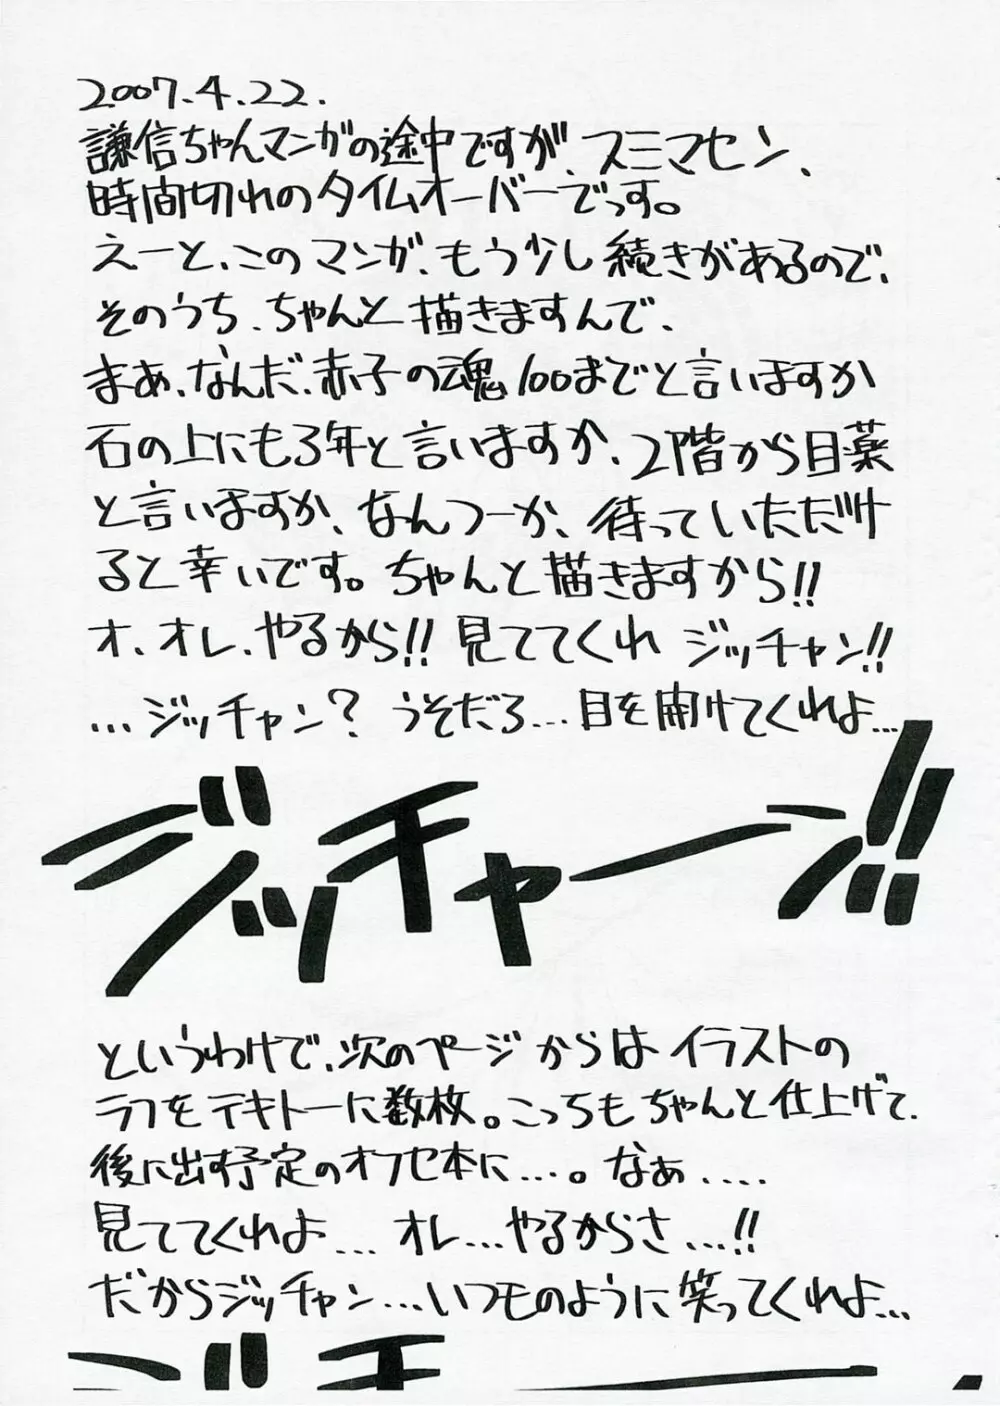 2007.4.22.
謙信ちゃんマンガの途中ですが、スミマセン、
時間切れのタイムオーバーでっす。
えーと、このマンガ、もう少し続きがあるので、
そのうち、ちゃんと描きますんで、
まあ、なんだ、赤子の魂100までと言いますか
石の上にも3年と言いますか、2階から目薬
と言いますか、なんつーか、待っていただけ
ると幸いです。ちゃんと描きますから!!
オ、オレ、やるから!! 見ててくれ ジッチャン!!
…ジッチャン? うそだろ…目を開けてくれよ…
ジッチャーン!!
というわけで、次のページからはイラストの
ラフをテキトーに数枚。こっちもちゃんと仕上げて、
後に出す予定のオフセ本に…。なぁ....
見ててくれよ… オレ…やるからさ…!!
だからジッチャン…いつものように笑ってくれよ…